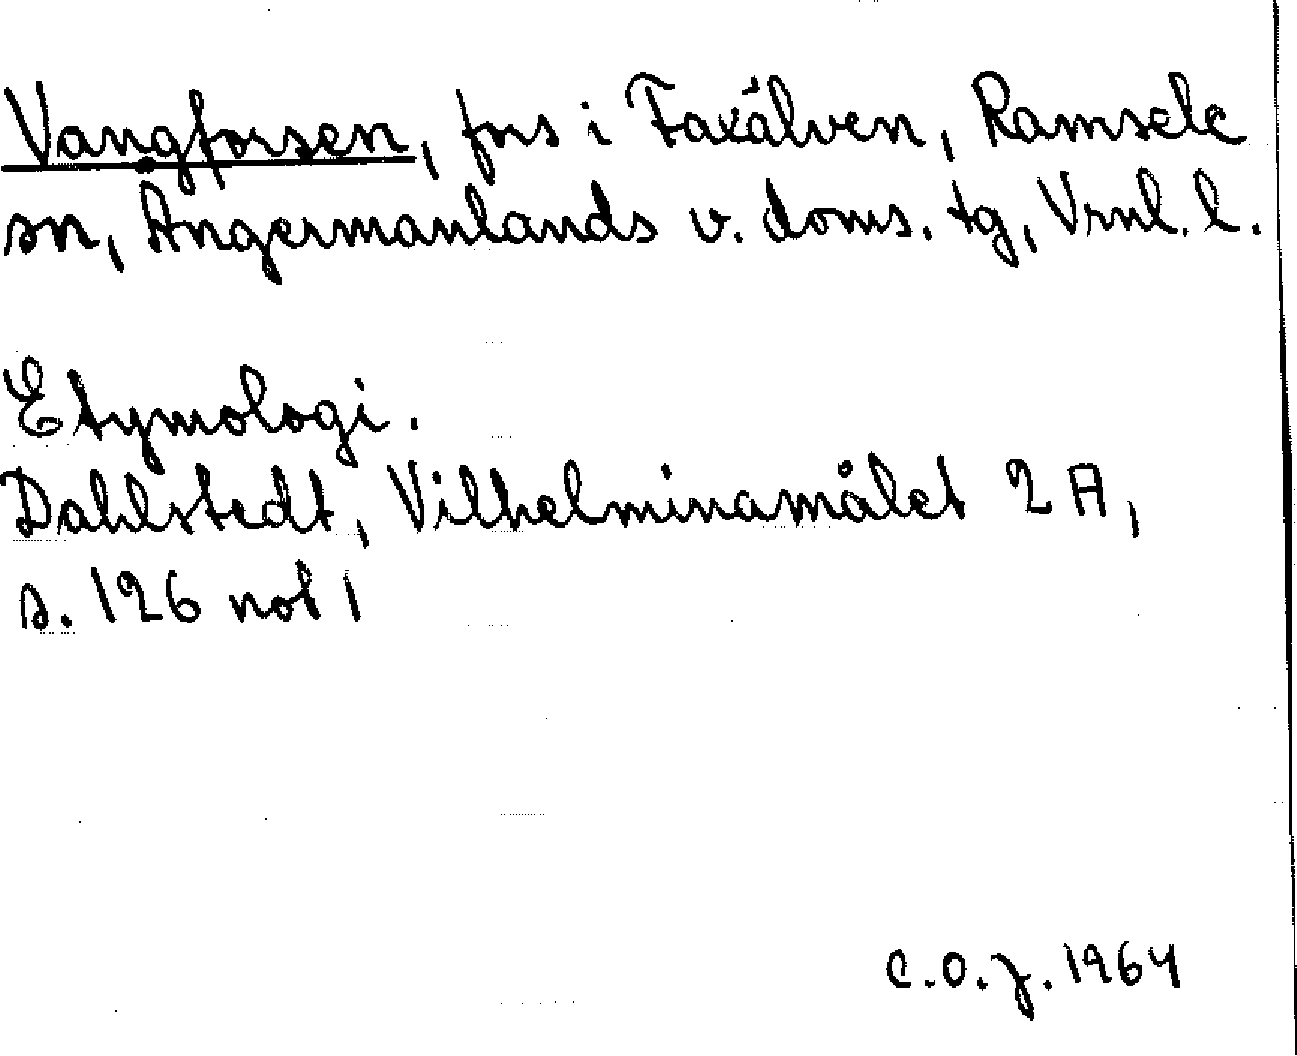 Vangforsen, fors i Faxälven, Ramsele
sn, Ångermanlands v. doms. tg, Vrnl. l.
Etymologi.
Dahlstedt, Vilhelminamålet 2 A,
s. 126 not 1
C.O.J. 1964